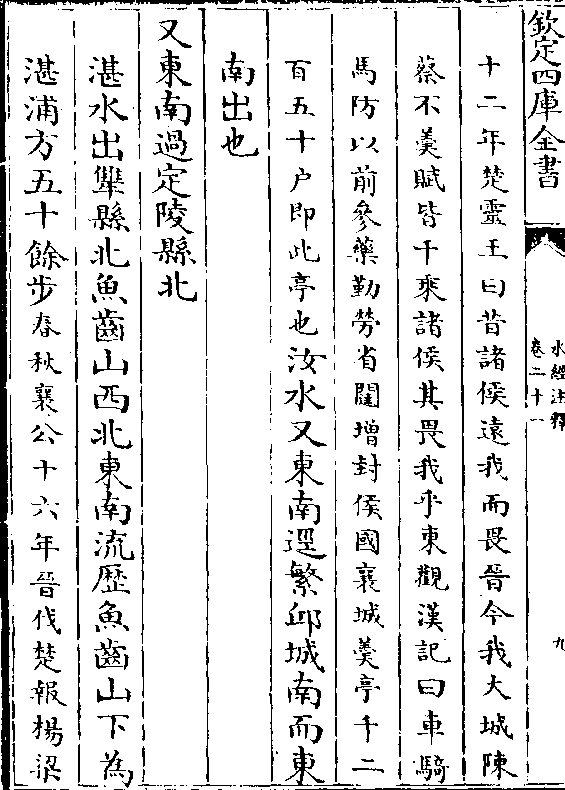 欽定四庫全書
水經注釋
卷二十一
九
十二年楚靈王曰昔諸侯遠我而畏晉今我大城陳
蔡不羹賦皆千乘諸侯其畏我乎東觀漢記曰車騎
馬防以前參藥勤勞省闥增封侯國襄城羹亭千二
百五十户即此亭也汝水又東南逕繁邱城南而東
南出也
又東南過定陵縣北
湛水出犨縣北魚齒山西北東南流歷魚齒山下為
湛浦方五十餘步春秋襄公十六年晉伐楚報楊梁